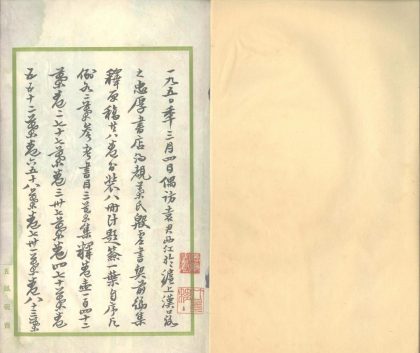 一九五〇年三月四日偶访袁君西江於滬上漢口路
之忠厚書店得觀葉氏殷虚書契前编集
釋原稿廿八卷分裝八册計題簽一葉自序凡
例九葉参考書目三葉集釋卷壹一百四十二
葉卷二七十七葉卷三卅七葉卷四七十葉卷
五五十二葉卷六五十八葉卷七卅一葉卷八十三葉